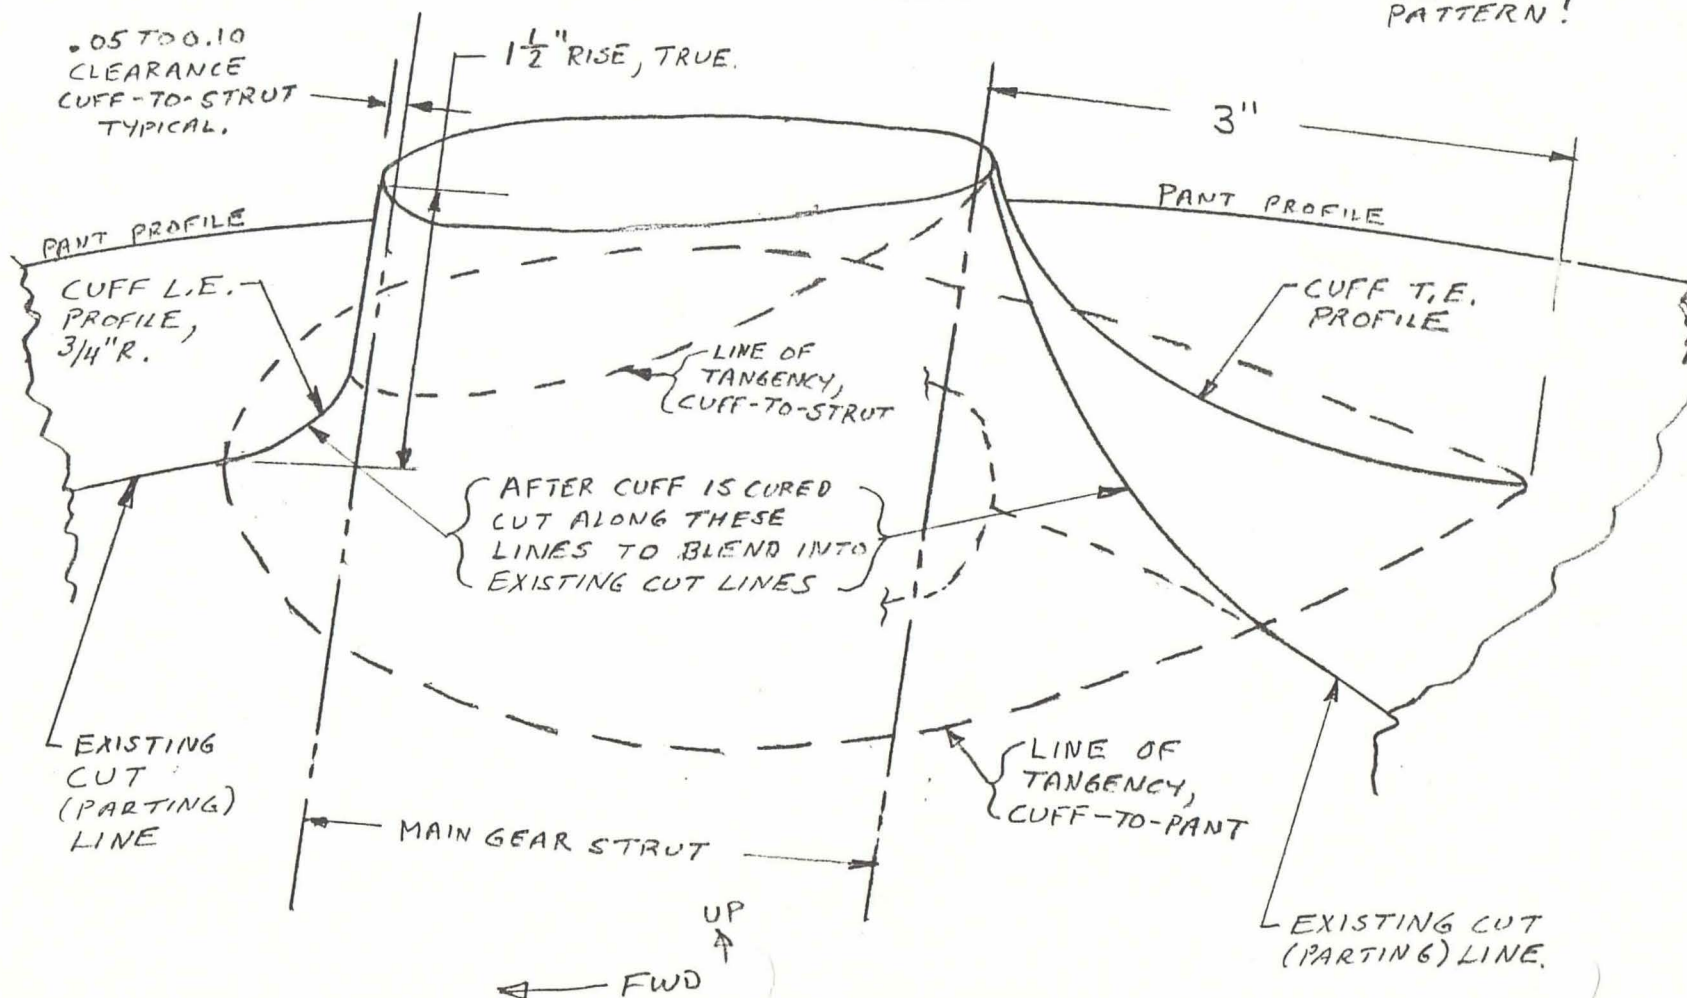 PATTERN!
.05 TO 0.10
CLEARANCE
CUFF-TO-STRUT
TYPICAL.
1 1/2" RISE, TRUE.
3"
PANT PROFILE
PANT PROFILE
CUFF L.E.
PROFILE,
3/4"R.
CUFF T.E.
PROFILE
LINE OF
TANGENCY,
CUFF-TO-STRUT
AFTER CUFF IS CURED
CUT ALONG THESE
LINES TO BLEND INTO
EXISTING CUT LINES
EXISTING
CUT
(PARTING)
LINE
MAIN GEAR STRUT
LINE OF
TANGENCY,
CUFF-TO-PANT
EXISTING CUT
(PARTING) LINE.
UP
FWD